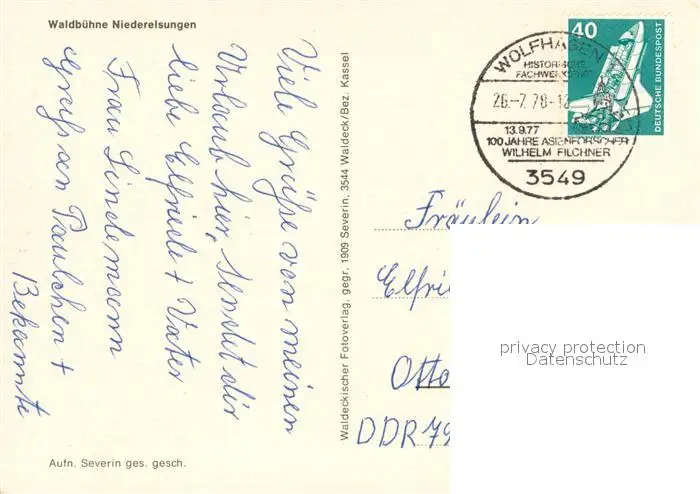 Waldbühne Niederelsungen
Viele Grüße von meinen
Urlaub hier, sendet dir
liebe Elfriede + Vater
Frau Lindemann
Gruß an Paulchen +
Bekannte
Aufn. Severin ges. gesch.
Waldeckischer Fotoverlag, gegr. 1909 Severin, 3544 Waldeck/Bez. Kassel
WOLFHAGEN
HISTORISCHE
26.-7.78-12
13.9.77
100 JAHRE ASIENFORSCHER
WILHELM FILCHNER
3549
40
DEUTSCHE BUNDESPOST
Fräulein
Elfrie
Otto
DDR 79
privacy protection
Datenschutz